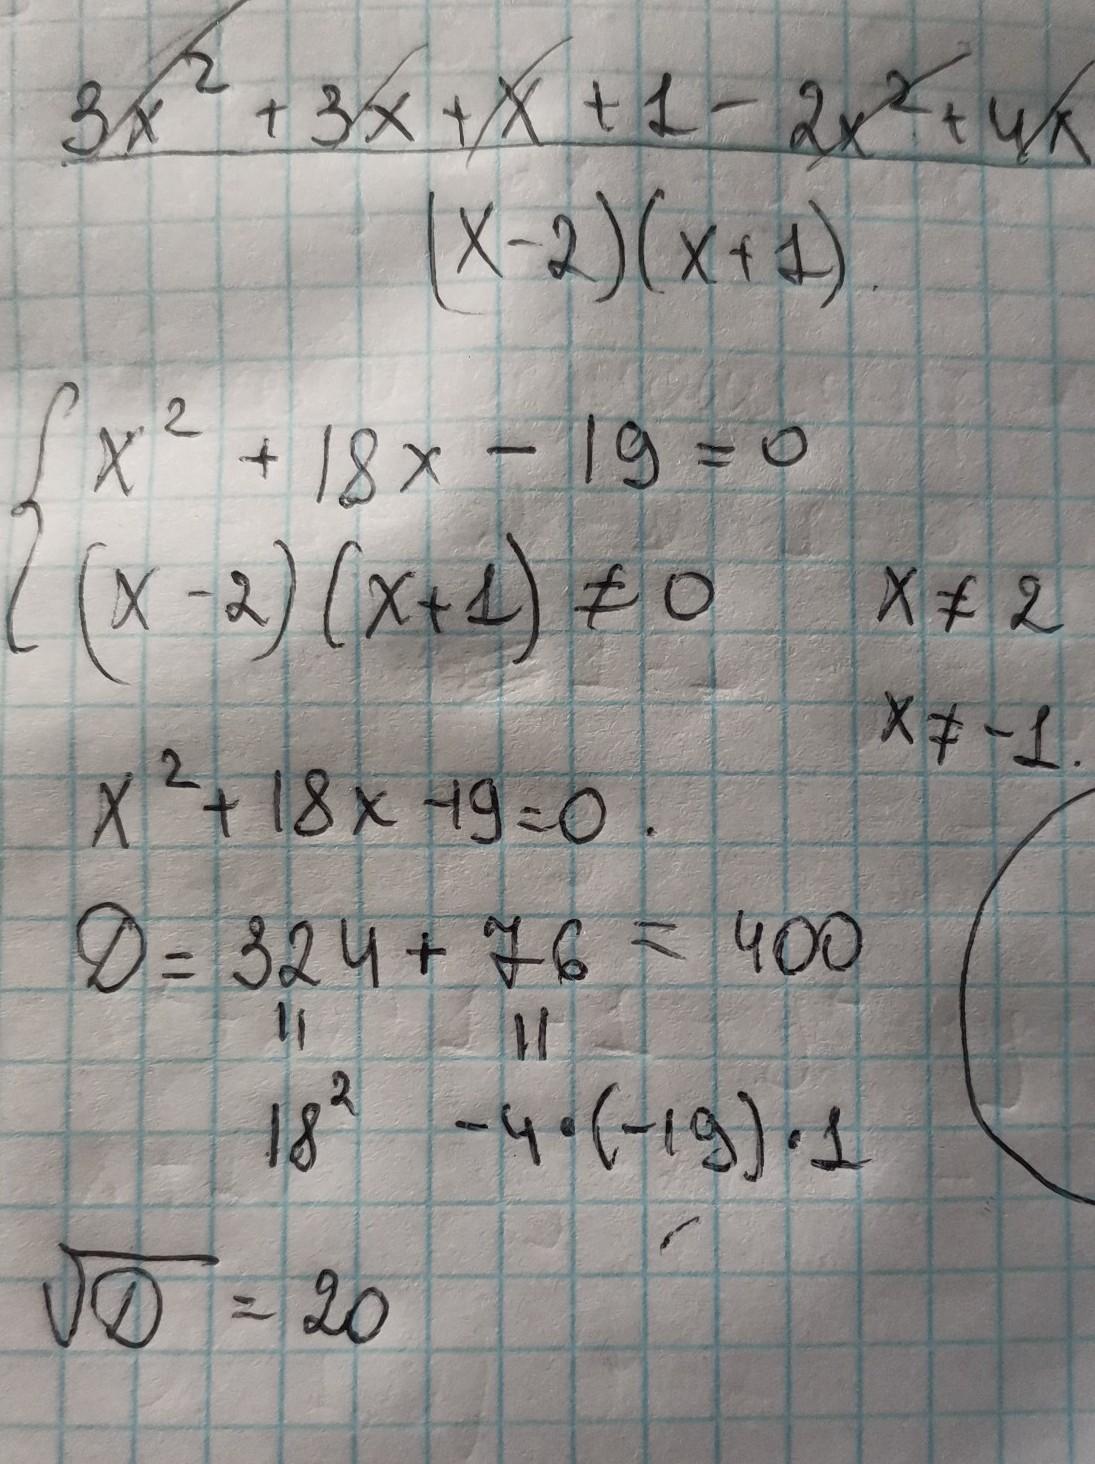 3x² + 3x + x + 1 - 2x² + 4x
(x-2)(x+1).
{ x² + 18x - 19 = 0
(x-2)(x+1) ≠ 0 x ≠ 2
x ≠ -1.
x² + 18x - 19 = 0.
D = 324 + 76 = 400
|| ||
18² -4·(-19)·1
√D = 20